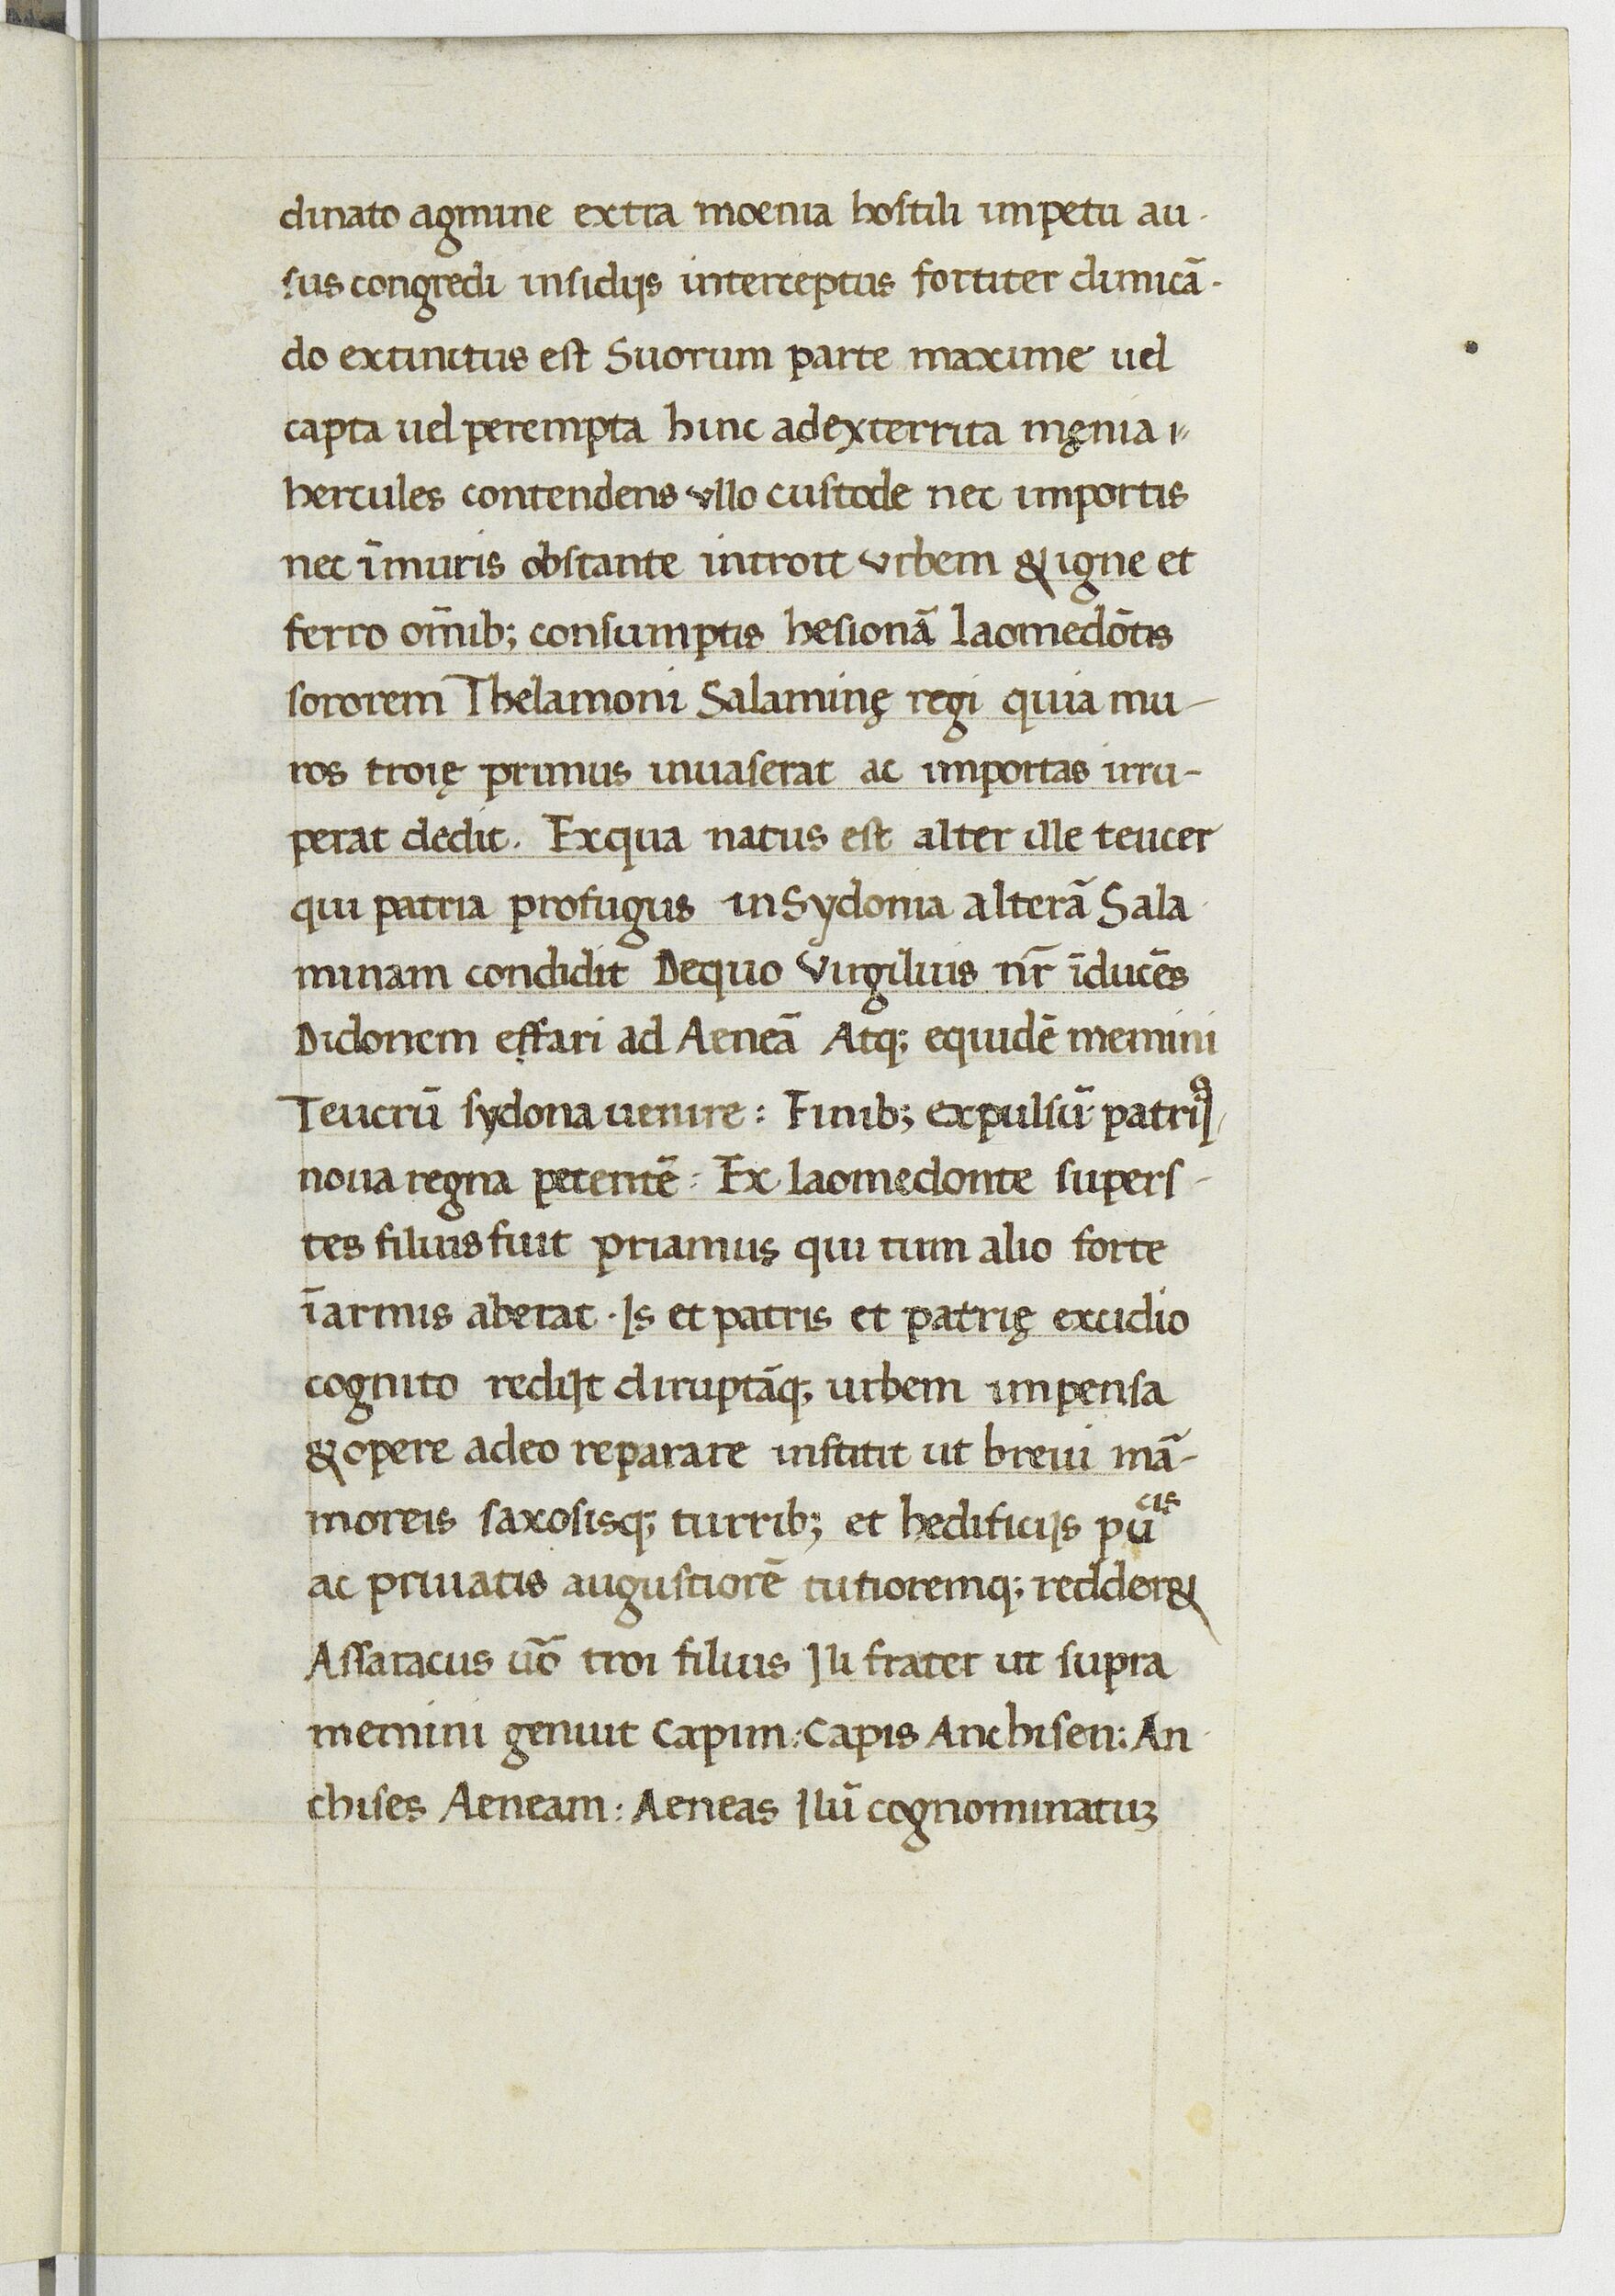 dinato agmine extra moenia hostili impetu au-
sus congredi insidijs interceptus fortiter dimicā-
do extinctus est Suorum parte maxime uel
capta uel perempta hinc adexterrita męnia
hercules contendens vllo custode nec inportis
nec īmuris obstante introit vrbem & igne et
ferro om̄ib; consumptis hesionā laomedōtis
sororem Thelamoni Salaminę regi quia mu-
ros troię primus inuaserat ac inportas irru-
perat dedit. Exqua natus est alter ille teucer
qui patria profugus inSydonia alterā Sala
minam condidit Dequo Virgilius nr̄ īducēs
Didonem effari ad Aeneā Atq; equidē memini
Teucrū sydona uenire: Finib; expulsū patrijs
noua regna petentē: Ex laomedonte supers-
tes filius fuit priamus qui tum alio forte
īarmis aberat. Is et patris et patrię excidio
cognito redijt diruptāq; urbem inpensa
& opere adeo reparare institit ut breui mā-
moreis saxosisq; turrib; et hedificijs pūcis
ac priuatis augustiorē tutioremq; redder&
Assaracus uō troi filius Ili frater ut supra
memini genuit Capim: Capis Anchisen: An
chises Aeneam: Aeneas Ilū cognominatuꝫ